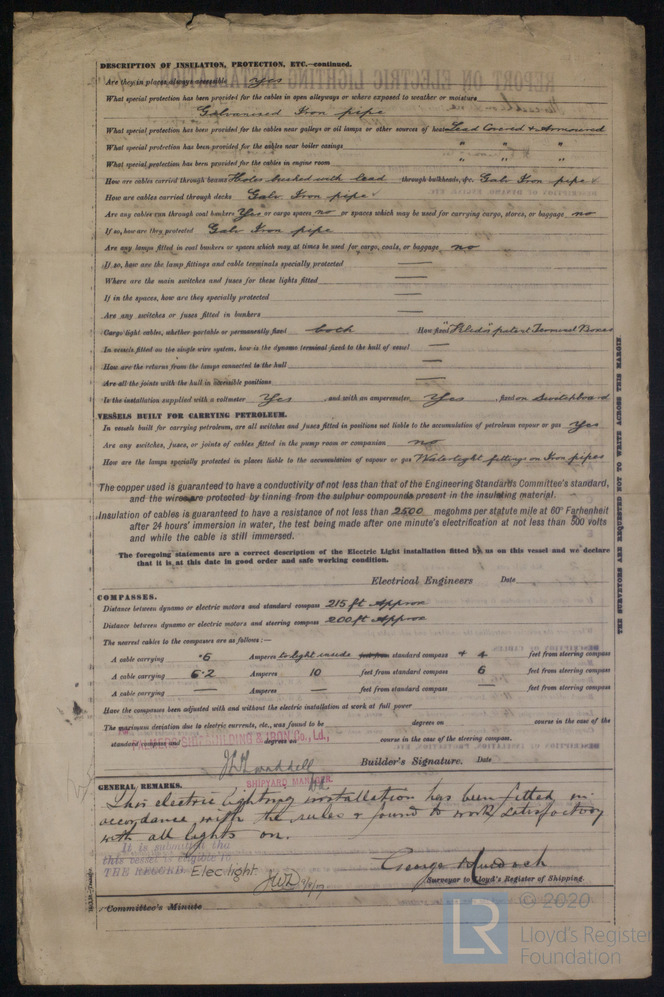 DESCRIPTION OF INSULATION, PROTECTION, ETC.—continued.
Are they in places always accessible Yes
What special protection has been provided for the cables in open alleyways or where exposed to weather or moisture
Galvanised Iron pipe
What special protection has been provided for the cables near galleys or oil lamps or other sources of heat Lead Covered & Armoured
What special protection has been provided for the cables near boiler casings " " "
What special protection has been provided for the cables in engine room " " "
How are cables carried through beams Holes bushed with lead through bulkheads, &c. Galv Iron pipe
How are cables carried through decks Galv Iron pipe
Are any cables run through coal bunkers Yes or cargo spaces no or spaces which may be used for carrying cargo, stores, or baggage no
If so, how are they protected Galv Iron pipe
Are any lamps fitted in coal bunkers or spaces which may at times be used for cargo, coals, or baggage no
If so, how are the lamp fittings and cable terminals specially protected —
Where are the main switches and fuses for these lights fitted —
If in the spaces, how are they specially protected —
Are any switches or fuses fitted in bunkers —
Cargo light cables, whether portable or permanently fixed both How fixed patent Terminal Boxes
In vessels fitted on the single wire system, how is the dynamo terminal fixed to the hull of vessel —
How are the returns from the lamps connected to the hull —
Are all the joints with the hull in accessible positions —
Is the installation supplied with a voltmeter Yes and with an amperemeter Yes fixed on Switchboard
VESSELS BUILT FOR CARRYING PETROLEUM.
In vessels built for carrying petroleum, are all switches and fuses fitted in positions not liable to the accumulation of petroleum vapour or gas Yes
Are any switches, fuses, or joints of cables fitted in the pump room or companion no
How are the lamps specially protected in places liable to the accumulation of vapour or gas Watertight fittings on Iron pipes
The copper used is guaranteed to have a conductivity of not less than that of the Engineering Standards Committee's standard,
and the wires are protected by tinning from the sulphur compounds present in the insulating material.
Insulation of cables is guaranteed to have a resistance of not less than 2500 megohms per statute mile at 60° Farhenheit
after 24 hours' immersion in water, the test being made after one minute's electrification at not less than 500 volts
and while the cable is still immersed.
The foregoing statements are a correct description of the Electric Light installation fitted by us on this vessel and we declare
that it is at this date in good order and safe working condition.
Electrical Engineers Date
COMPASSES.
Distance between dynamo or electric motors and standard compass 215 ft Approx
Distance between dynamo or electric motors and steering compass 200 ft Approx
The nearest cables to the compasses are as follows:—
A cable carrying .6 Amperes to light inside standard compass & 4 feet from steering compass
A cable carrying 6.2 Amperes 10 feet from standard compass 6 feet from steering compass
A cable carrying — Amperes — feet from standard compass — feet from steering compass
Have the compasses been adjusted with and without the electric installation at work at full power
The maximum deviation due to electric currents, etc., was found to be degrees on course in the case of the
standard compass and degrees on course in the case of the steering compass.
PALMERS SHIPBUILDING & IRON Co., Ld.,
Builder's Signature. Date
SHIPYARD MANAGER.
GENERAL REMARKS.
This electric lighting installation has been fitted in
accordance with the rules & found to work satisfactory
with all lights on.
It is submitted that
this vessel is eligible to
THE RECORD. Elec light.
George Murdoch
Surveyor to Lloyd's Register of Shipping.
Committee's Minute
THE SURVEYORS ARE REQUESTED NOT TO WRITE ACROSS THIS MARGIN.
© 2020
LR
Lloyd's Register
Foundation